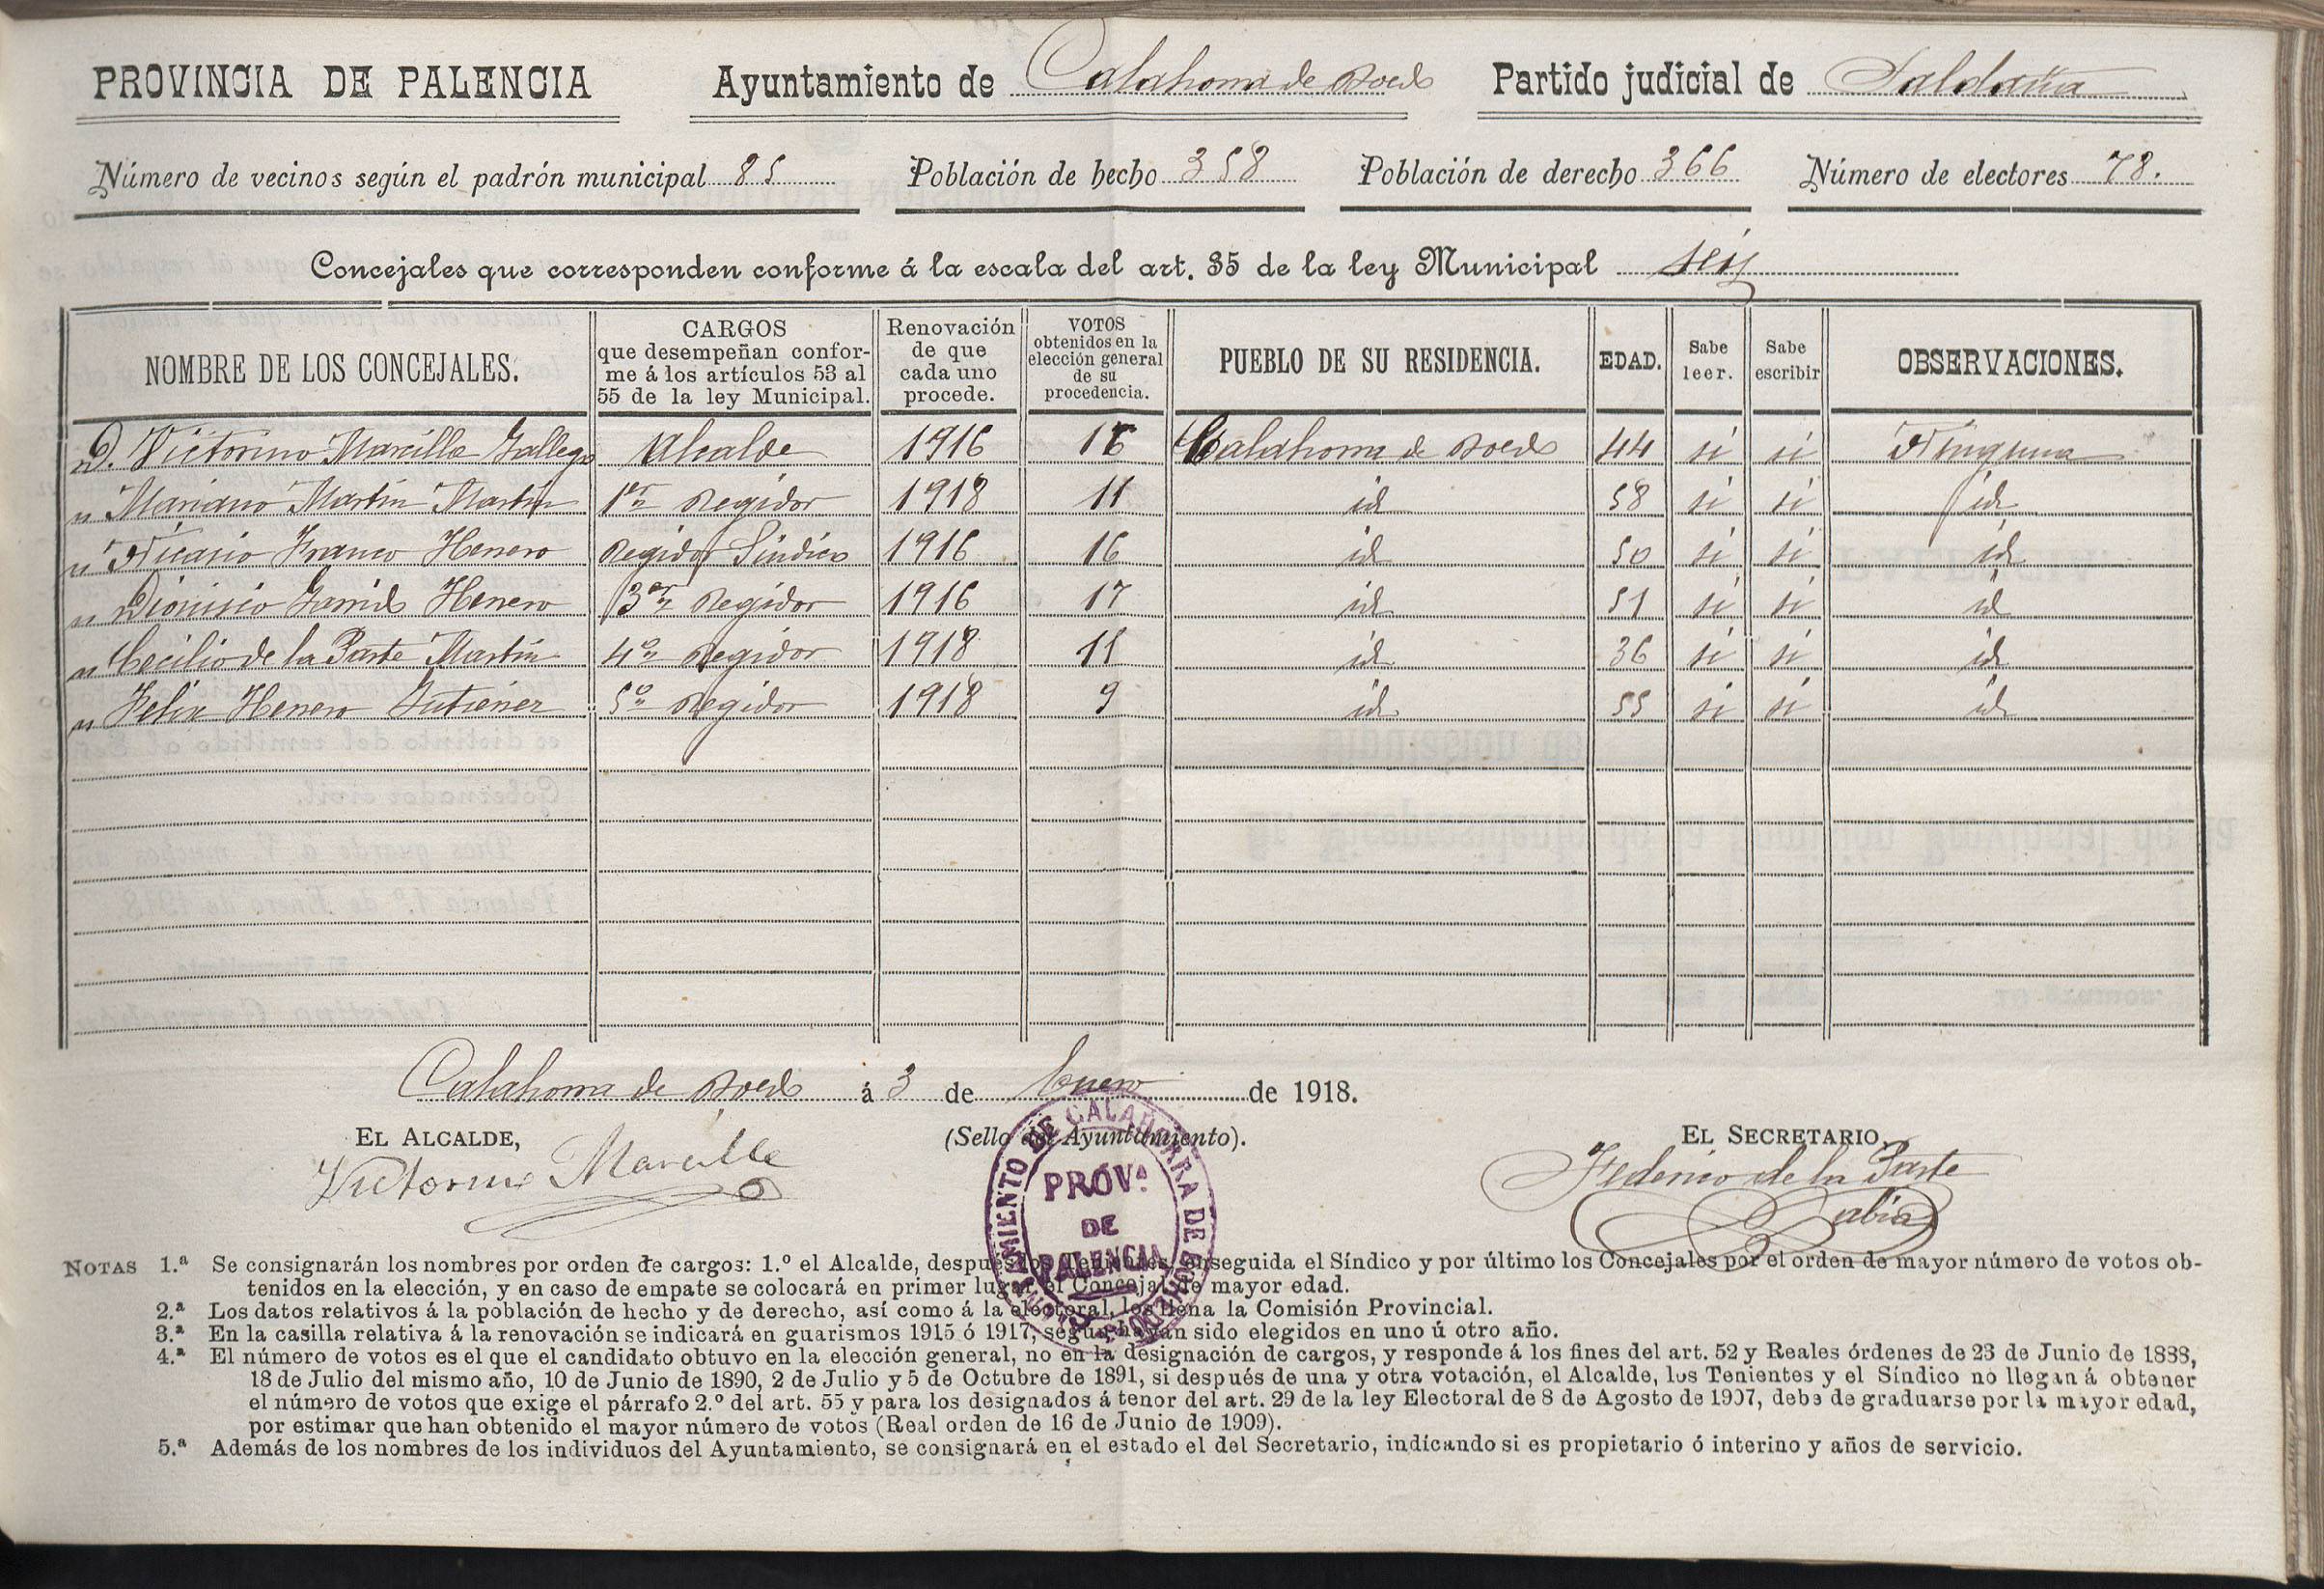 PROVINCIA DE PALENCIA Ayuntamiento de Calahorra de Boedo Partido judicial de Saldaña
Número de vecinos según el padrón municipal 85 Población de hecho 358 Población de derecho 366 Número de electores 78.
Concejales que corresponden conforme á la escala del art. 35 de la ley Municipal seis
NOMBRE DE LOS CONCEJALES. CARGOS que desempeñan conforme á los artículos 53 al 55 de la ley Municipal. Renovación de que cada uno procede. VOTOS obtenidos en la elección general de su procedencia. PUEBLO DE SU RESIDENCIA. EDAD. Sabe leer. Sabe escribir OBSERVACIONES.
D. Victorino Marcilla Gallego Alcalde 1916 Calahorra de Boedo 44 si si Ninguna
" Mariano Martín Martín 1er Regidor 1918 11 id 58 si si id
" Nicasio Franco Herrero Regidor Síndico 1916 16 id 50 si si id
" Dionisio Garrido Herrero 3er Regidor 1916 17 id 51 si si id
" Cecilio de la Parte Martín 4º Regidor 1918 11 id 36 si si id
" Felix Herrero Gutierrez 5º Regidor 1918 9 id 55 si si id
Calahorra de Boedo á 3 de Enero de 1918.
EL ALCALDE, (Sello del Ayuntamiento). EL SECRETARIO,
Victorino Marcilla
Federico de la Parte
AYUNTAMIENTO DE CALAHORRA DE BOEDO
PROVª
DE
PALENCIA
NOTAS 1.ª Se consignarán los nombres por orden de cargos: 1.º el Alcalde, después los Tenientes, enseguida el Síndico y por último los Concejales por el orden de mayor número de votos ob-
tenidos en la elección, y en caso de empate se colocará en primer lugar el Concejal de mayor edad.
2.ª Los datos relativos á la población de hecho y de derecho, así como á la electoral, los llena la Comisión Provincial.
3.ª En la casilla relativa á la renovación se indicará en guarismos 1915 ó 1917, según hayan sido elegidos en uno ú otro año.
4.ª El número de votos es el que el candidato obtuvo en la elección general, no en la designación de cargos, y responde á los fines del art. 52 y Reales órdenes de 23 de Junio de 1888,
18 de Julio del mismo año, 10 de Junio de 1890, 2 de Julio y 5 de Octubre de 1891, si después de una y otra votación, el Alcalde, los Tenientes y el Síndico no llegan á obtener
el número de votos que exige el párrafo 2.º del art. 55 y para los designados á tenor del art. 29 de la ley Electoral de 8 de Agosto de 1907, debe de graduarse por la mayor edad,
por estimar que han obtenido el mayor número de votos (Real orden de 16 de Junio de 1909).
5.ª Además de los nombres de los individuos del Ayuntamiento, se consignará en el estado el del Secretario, indicando si es propietario ó interino y años de servicio.